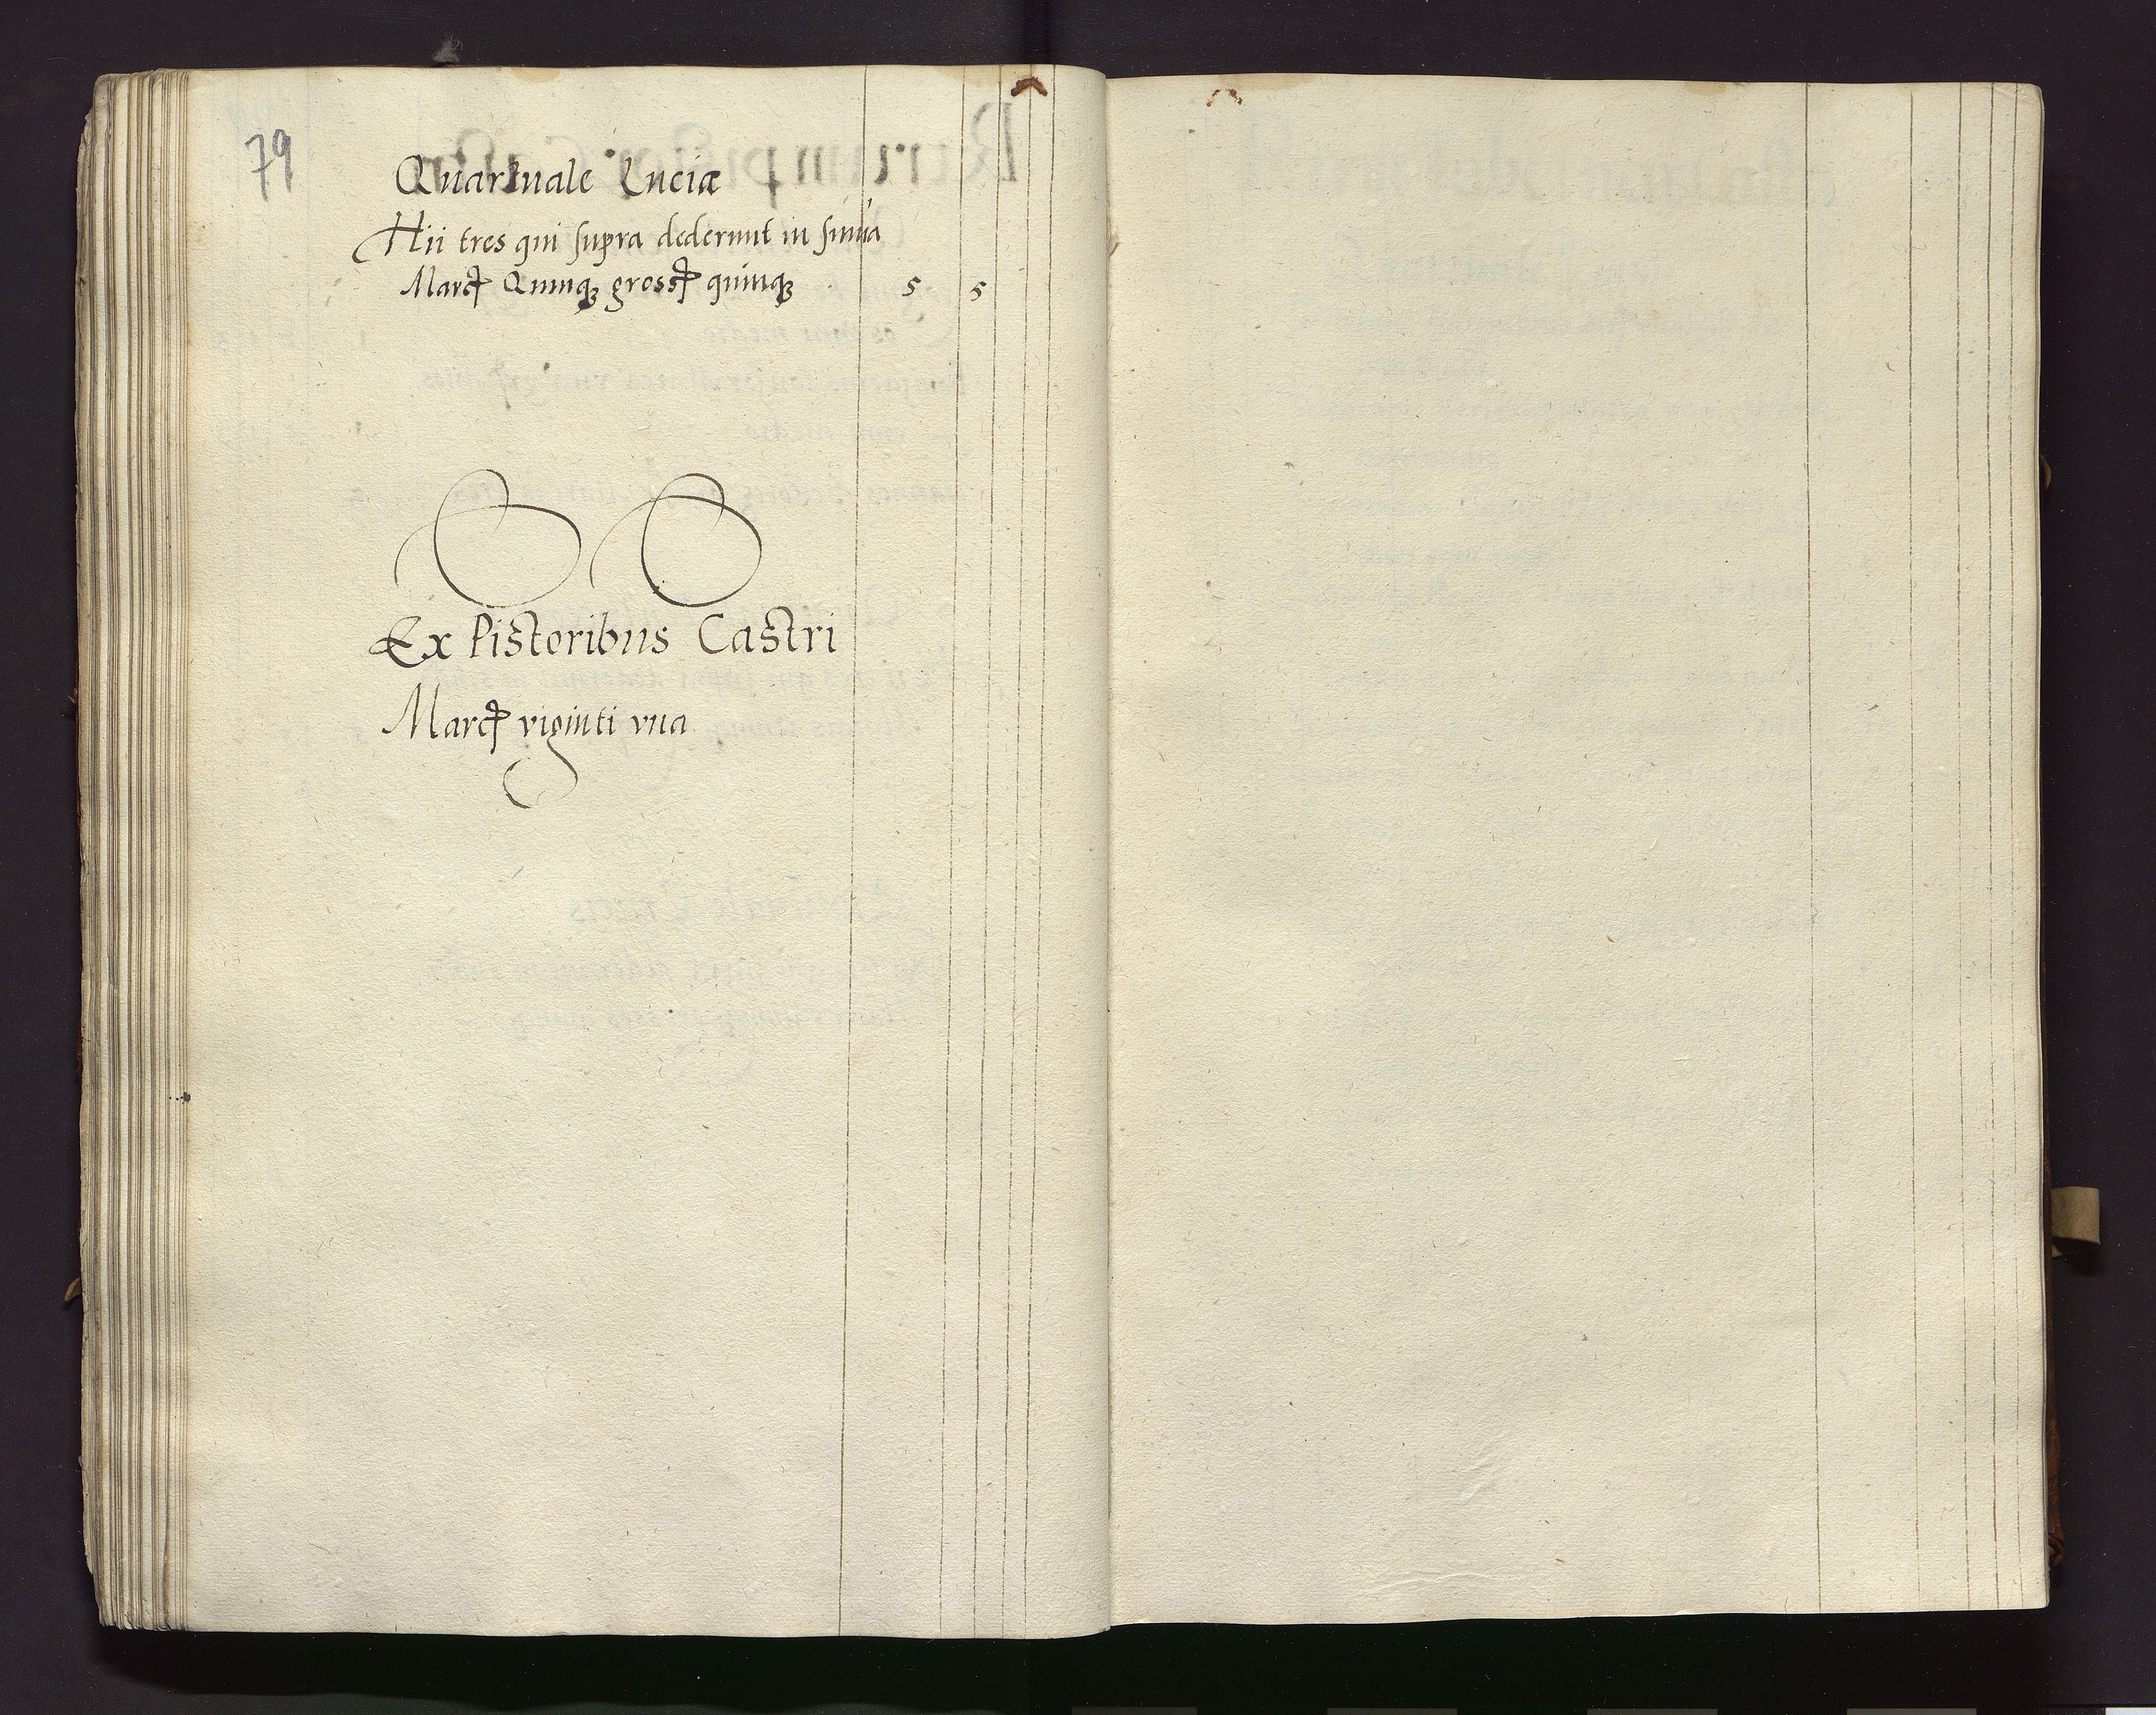 79
Quartuale Luciæ
Hii tres qui supra dederunt in sum̃a
Marcꝭ Quinqꝫ grossꝭ quinqꝫ 5 5
Ex Pistoribus Castri
Marcꝭ viginti vna